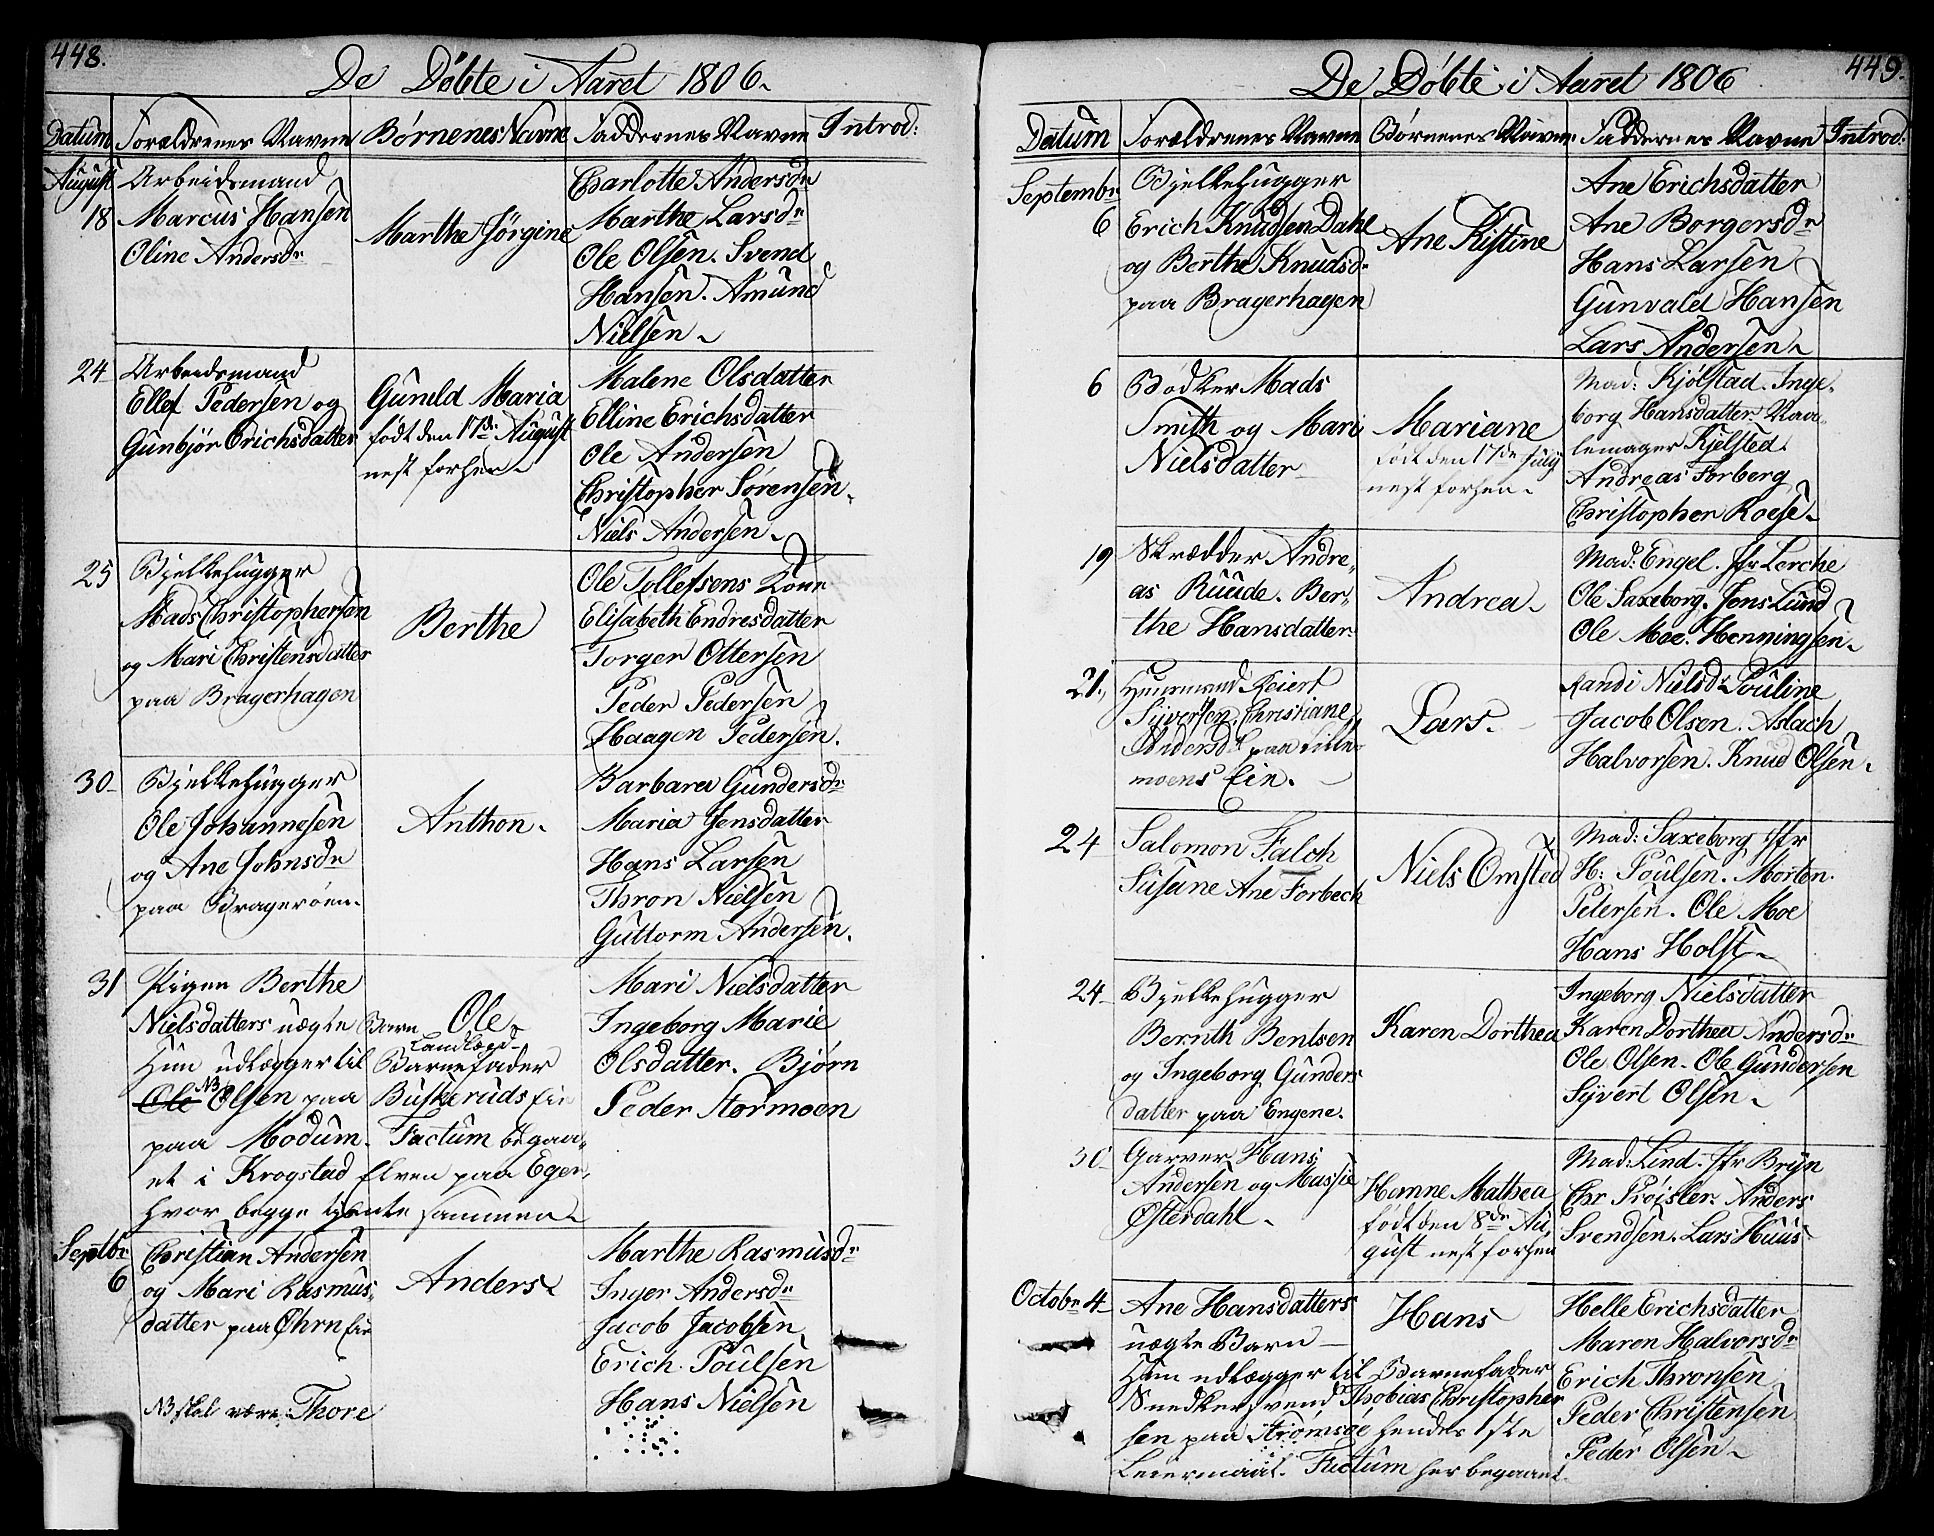 448.
De Döbte i Aaret 1806.
Datum Forældrenes Navne Børnenes Navne Faddernes Navne Introd:
August Arbeidsmand
18 Marcus Hansen
Oline Andersdr
Marthe Jörgine
Charlotte Andersdr
Marthe Larsdr
Ole Olsen. Svend
Hansen. Amund
Nielsen
24 Arbeidsmand
Ellef Pedersen og
Gunbjör Erichsdatter
Guneld Maria
födt den 17de August
nest forhen
Malene Olsdatter
Elline Erichsdatter
Ole Andersen
Christopher Sörensen
Niels Andersen
25 Bjelkehugger
Mads Christophersen
og Mari Christensdatter
paa Bragerhagen
Berthe
Ole Tollefsens Kone
Elisabeth Endresdatter
Torger Ottersen
Peder Pedersen
Haagen Pedersen.
30 Bjelkehugger
Ole Johannesen
og Ane Johnsdr
paa Brageröen
Anthon
Barbara Gundersdr
Maria Jensdatter
Hans Larsen
Thron Nielsen
Guttorm Andersen.
31 Pigen Berthe
Nielsdatters uægte Barn Ole
Landværd
Hun udlægger til Barnefader
NB
Ole Olsen paa Buskeruds Eie
paa Modum. Factum begaa-
et i Krogstad Elven paa Eger,
hvor begge tjente sammen
Mari Nielsdatter
Ingeborg Marie
Olsdatter. Bjørn
Peder Stormoen
Septbr Christian Andersen
6 og Mari Rasmus-
datter paa Öhrn Eie
NB skal være: Thore
Anders
Marthe Rasmusdr
Inger Andersdr
Jacob Jacobsen
Erich Poulsen
Hans Nielsen
449.
De Döbte i Aaret 1806
Datum Forældrenes Navne Börnenes Navne Faddernes Navne Introd:
Septembr Bjelkehugger
6 Erich Knudsen Dahl
og Berthe Knudsdr
paa Bragerhagen
Ane Kistine
Ane Erichsdatter
Ane Borgersdr
Hans Larsen
Gunvald Hansen
Lars Andersen
6 Bödker Mads
Smith og Mari
Nielsdatter
Mariane
födt den 17de July
nest forhen
Mad: Kjölstad. Inge-
borg Hansdatter
lemager Kjelsted.
Andreas Forberg
Christopher Roese
19 Skrædder Andre-
as Ruude. Ber-
the Hansdatter
Andrea
Mad: Engel. Jfr Lerche
Ole Saxeborg. Jens Lund
Ole Moe. Henningsen
21. Huusmand Reiert
Syversen. Christiane
Andersdr paa Lille-
moens Eie.
Lars.
Randi Nielsdr Pouline
Jacob Olsen. Aslach
Halvorsen. Knud Olsen
24 Salomon Falch
Susane Ane Forbech
Niels Omsted
Mad: Saxeborg Jfr
H: Poulsen. Morten
Petersen. Ole Moe
Hans Holst
24 Bjelkehugger
Bernth Bentsen
og Ingeborg Gunders
datter paa Engene.
Karen Dorthea
Ingeborg Nielsdatter
Karen Dorthea Andersdr
Ole Olsen. Ole Gundersen
Syvert Olsen
30 Garver Hans
Andersen og Massie
Østerdahl
Hanne Mathea
födt den 8de Au
gust nest forhen
Mad: Lind. Jfr Bryn
Chr Pröisler. Anders
Svendsen. Lars Huus
Octobr 4 Ane Hansdatters
uægte Barn
Hun udlægger til Barnefader
Snedkersvend Thobias Christopher
sen paa Strömsöe hendes 1ste
Leiermaal. Factum her begaaet.
Hans
Helle Erichsdatter
Maren Halvorsdr
Erich Thronsen
Peder Christensen
Peder Olsen